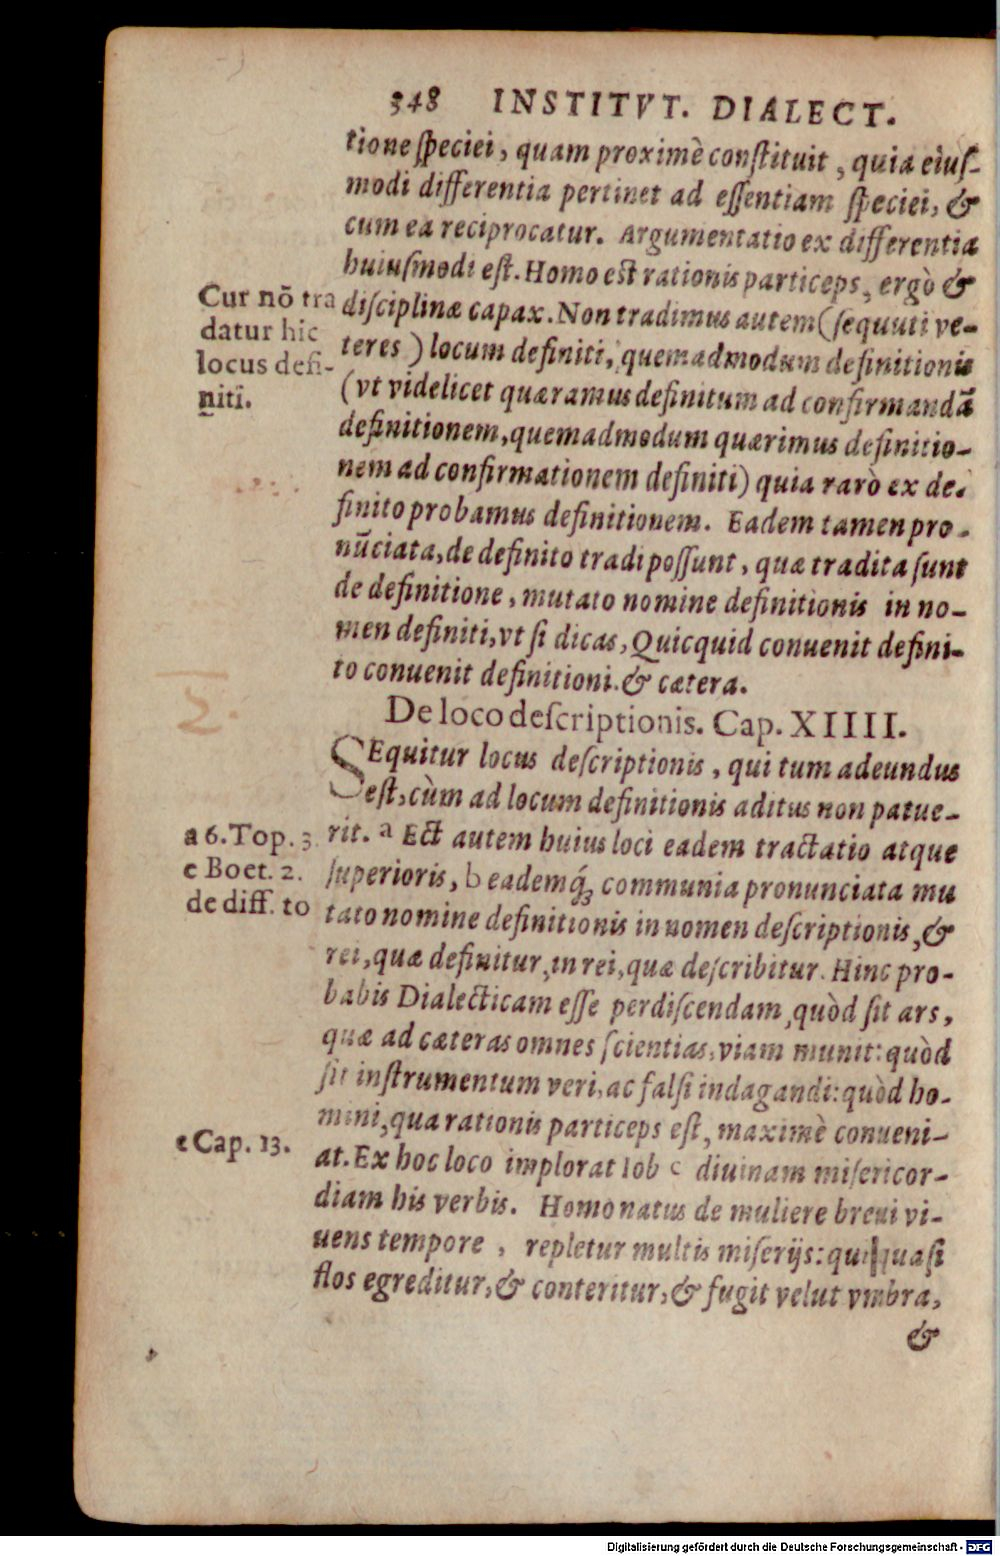 348 INSTITVT. DIALECT.
tione ſpeciei, quam proximè conſtituit, quia eiuſ-
modi differentia pertinet ad eſſentiam ſpeciei, &
cum ea reciprocatur. Argumentatio ex differentia
huiuſmodi eſt. Homo eſt rationis particeps, ergò &
diſciplinæ capax. Non tradimus autem (ſequuti ve-
teres) locum definiti, quemadmodum definitionis
(vt videlicet quæramus definitum ad confirmandã
definitionem, quemadmodum quærimus definitio-
nem ad confirmationem definiti) quia rarò ex de-
finito probamus definitionem. Eadem tamen pro-
nũciata, de definito tradi poſſunt, quæ tradita ſunt
de definitione, mutato nomine definitionis in no-
men definiti, vt ſi dicas, Quicquid conuenit defini-
to conuenit definitioni. & cætera.
Cur nõ tra
datur hic
locus defi-
niti.
De loco deſcriptionis. Cap. XIIII.
SEquitur locus deſcriptionis, qui tum adeundus
eſt, cùm ad locum definitionis aditus non patue-
rit. a Eſt autem huius loci eadem tractatio atque
ſuperioris, b eademq́ꝫ communia pronunciata mu
tato nomine definitionis in nomen deſcriptionis, &
rei, quæ definitur, in rei, quæ deſcribitur. Hinc pro-
babis Dialecticam eſſe perdiſcendam, quòd ſit ars,
quæ ad cæteras omnes ſcientias, viam munit: quòd
ſit inſtrumentum veri, ac falſi indagandi: quòd ho-
mini, qua rationis particeps eſt, maximè conueni-
at. Ex hoc loco implorat Iob c diuinam miſericor-
diam his verbis. Homo natus de muliere breui vi-
uens tempore, repletur multis miſerijs: qui quaſi
flos egreditur, & conteritur, & fugit velut vmbra,
&
a 6. Top. 3
e Boet. 2.
de diff. to
c Cap. 13.
Digitalisierung gefördert durch die Deutsche Forschungsgemeinschaft - DFG